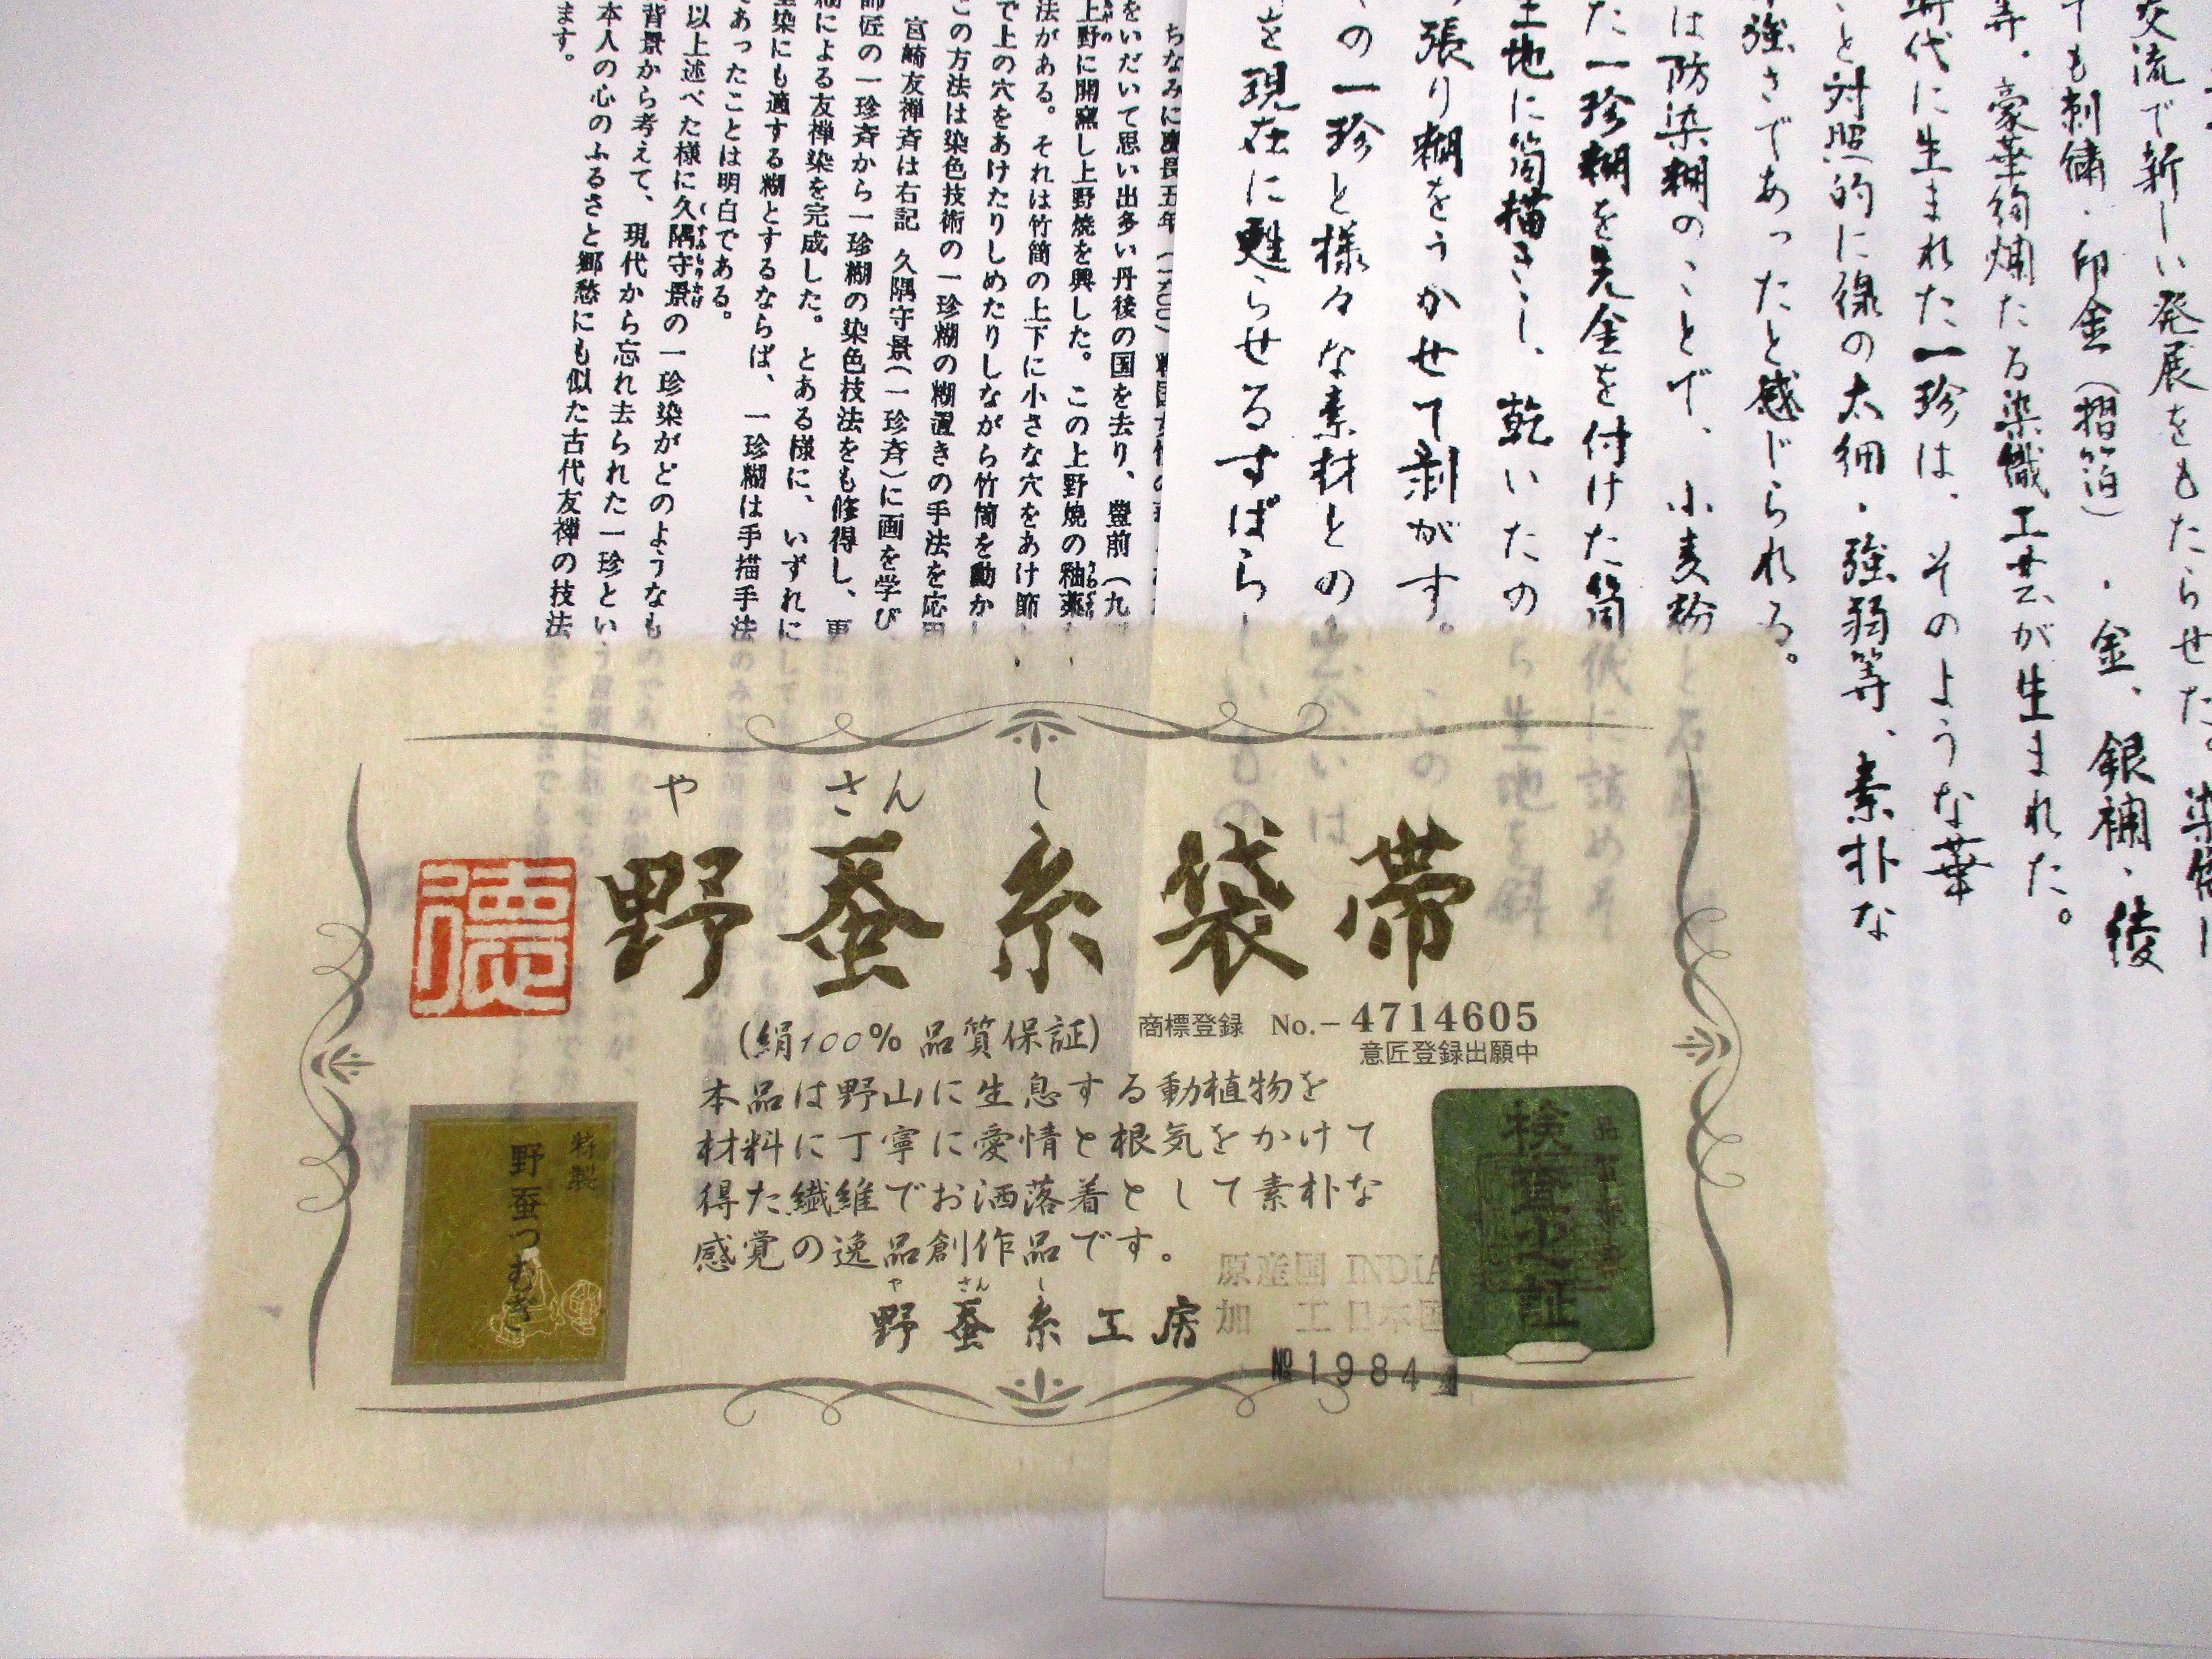 交流で新しい発展をもたらせた。
ても刺繍・印金（摺箔）・金、銀補・後
等、豪華絢爛たる染織工芸が生まれた。
時代に生まれた一珍は、そのような華
と対照的に線の太細・強弱等、素朴な
強さであったと感じられる。
は防染糊のことで、小麦粉と石
た一珍糊を先金を付けた筒状に詰めそ
生地に筒描きし、乾いたのら生地を斜
張り糊をうかせて剥がす。この
の一珍と様々な素材との出会いは
を現在に甦らせるすばらしいもの
ちなみに慶長五年（一六〇〇）
をいだいて思い出多い丹後の国を去り、豊前（九
上野に開窯し上野焼を興した。この上野焼の釉薬
法がある。それは竹筒の上下に小さな穴をあけ節
で上の穴をあけたりしめたりしながら竹筒を動かし
この方法は染色技術の一珍糊の糊置きの手法を応用
宮崎友禅斉は右記 久隅守景（一珍斉）に画を学び、
師匠の一珍斉から一珍糊の染色技法をも修得し、更
糊による友禅染を完成した。とある様に、いずれに
染にも適する糊とするならば、一珍糊は手描手法
であったことは明白である。
以上述べた様に久隅守景の一珍染がどのようなも
背景から考えて、現代から忘れ去られた一珍とい
本人の心のふるさと郷愁にも似た古代友禅の技法
ます。
や さん し
野蚕糸袋帯
德
(絹100% 品質保証)
商標登録 No.-4714605
意匠登録出願中
本品は野山に生息する動植物を
材料に丁寧に愛情と根気をかけて
得た繊維でお洒落着として素朴な
感覚の逸品創作品です。
や さん し
野蚕糸工房
原産国 INDIA
加 工 日本国
№1984
特製
野蚕つむぎ
品質保証
検査之証